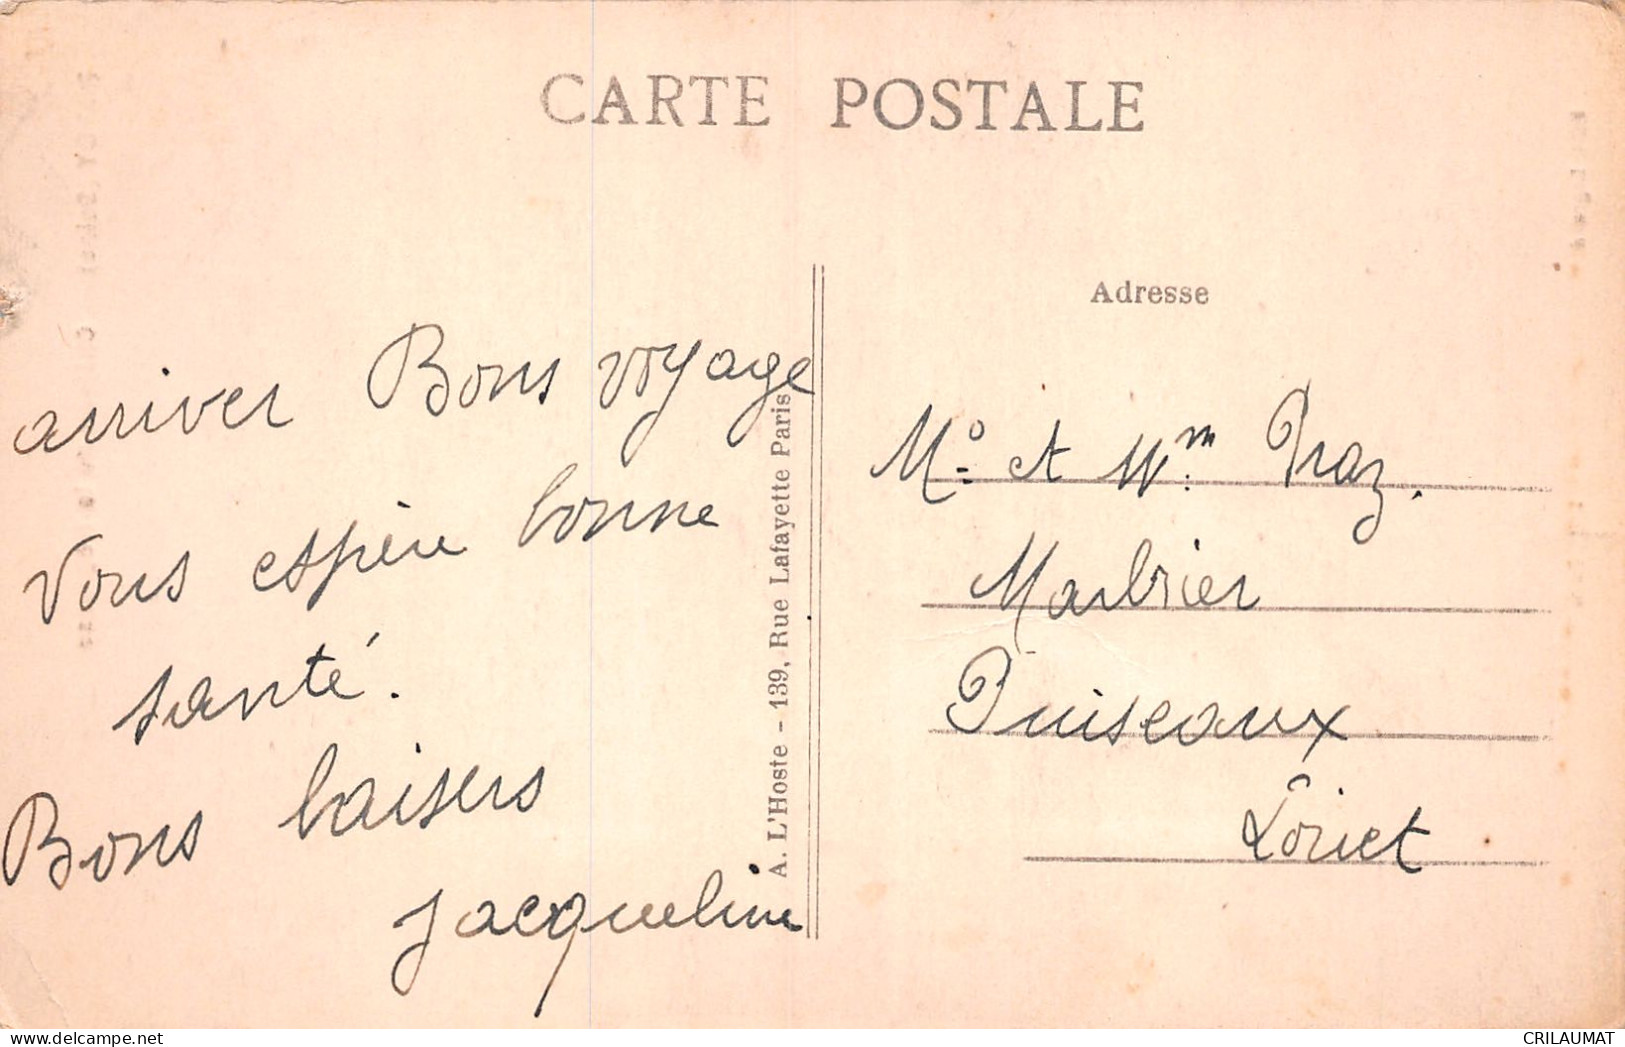 CARTE POSTALE
arriver Bons voyage
Vous espère bonne
santé.
Bons baisers
Jacqueline
A. L'Hoste - 139, Rue Lafayette Paris
Adresse
Mo et Mm Praz.
Marbrier
Puiseaux
Loiret
CRILAUMAT